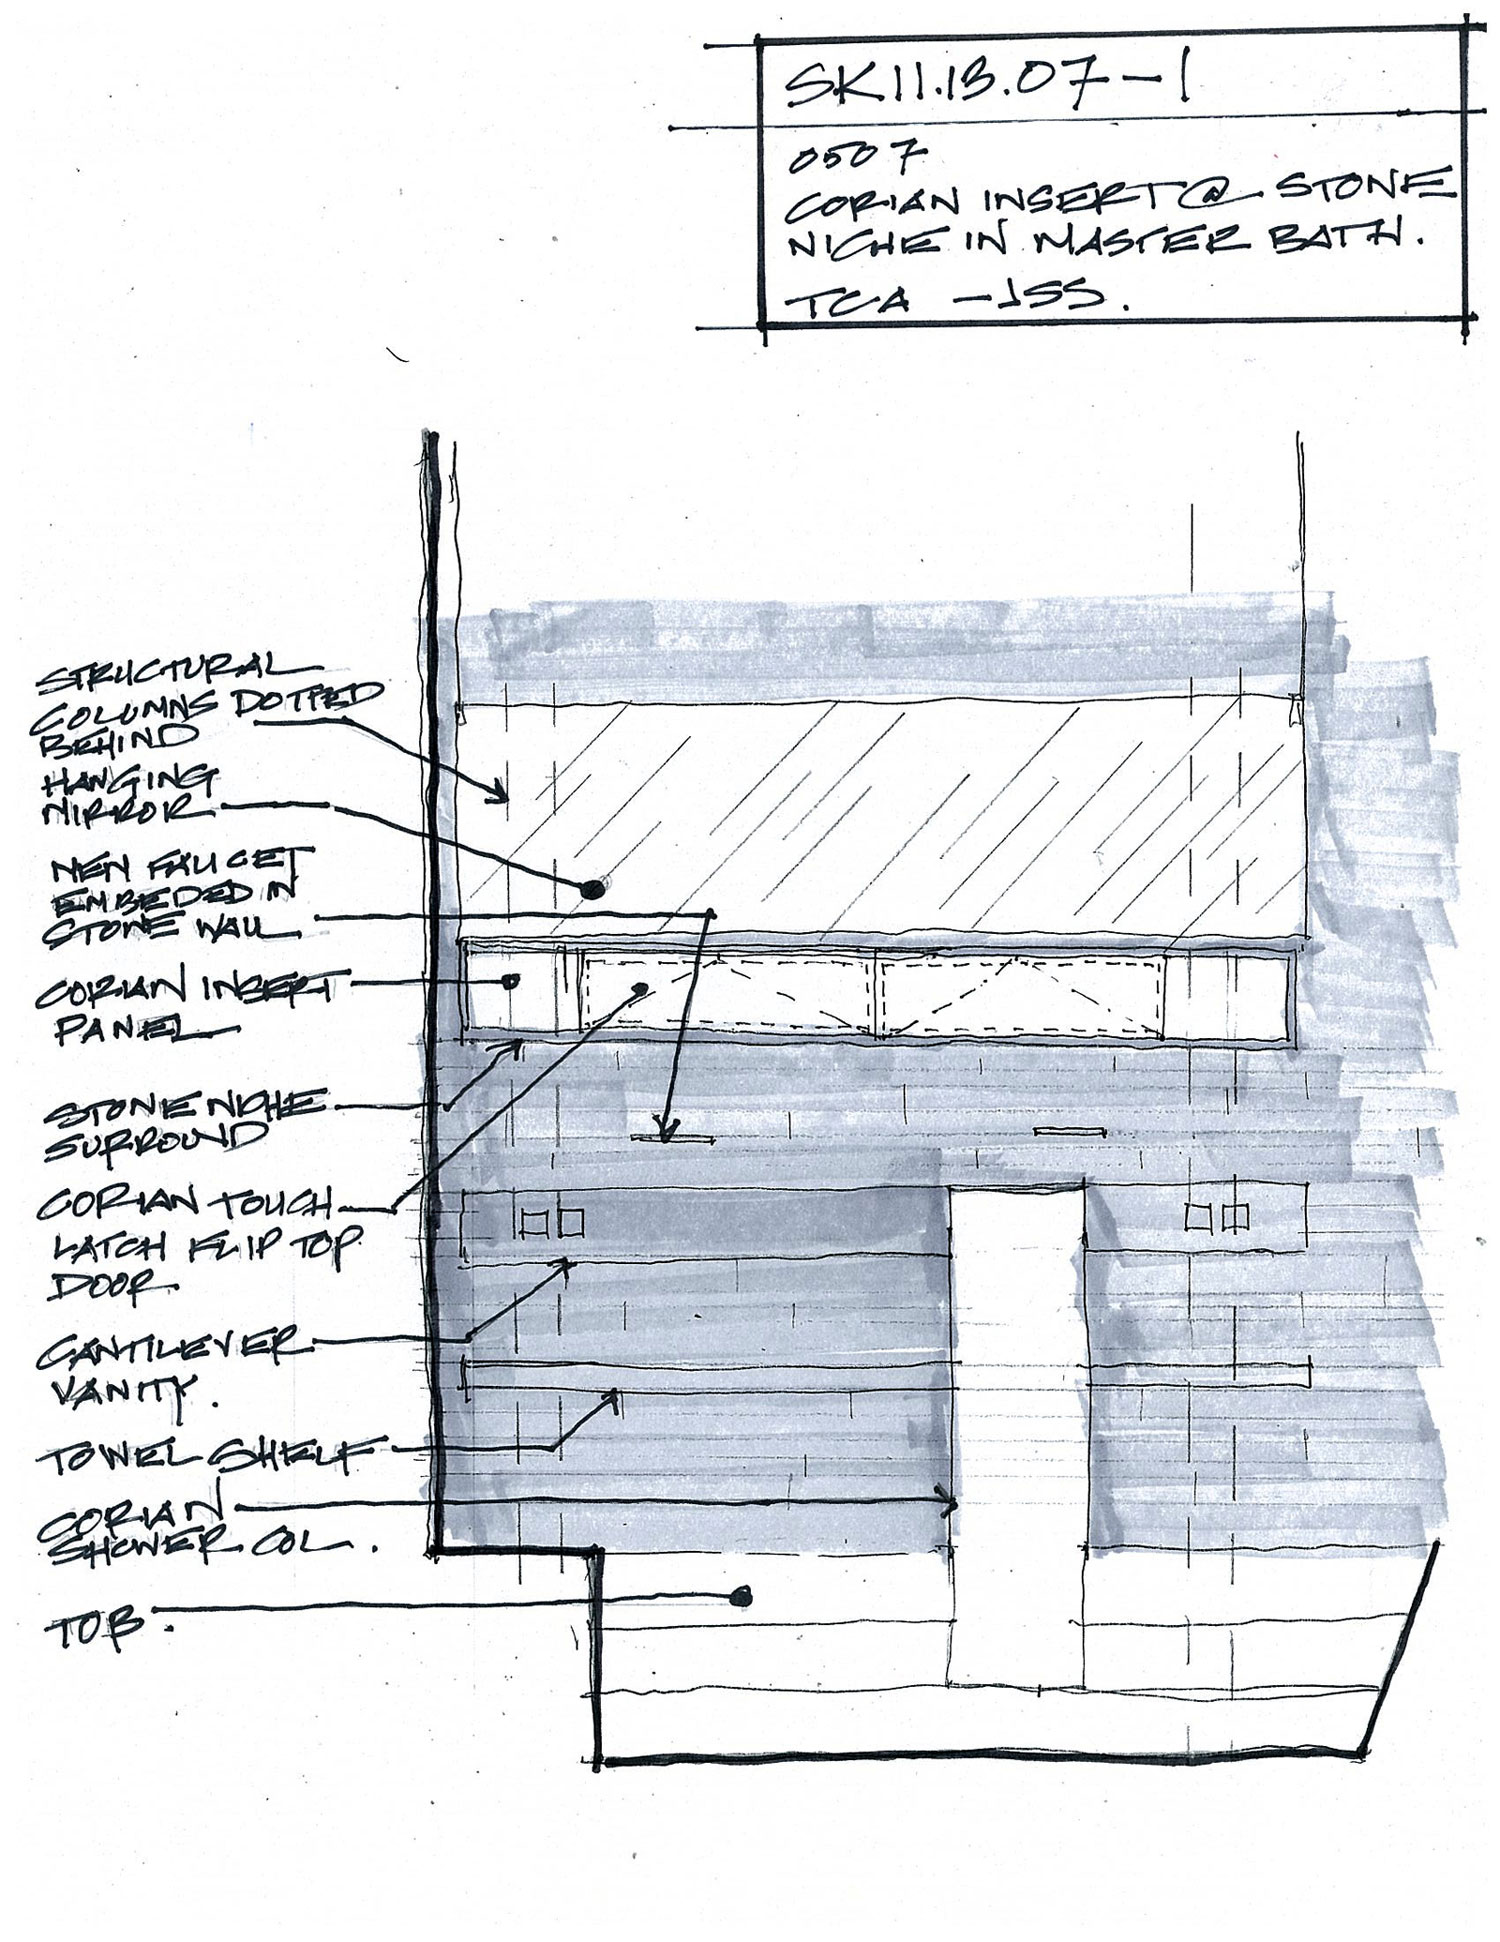 SK11.13.07-1
0507
CORIAN INSERT @ STONE
NICHE IN MASTER BATH.
TCA -JSS.
STRUCTURAL
COLUMNS DOTTED
BEHIND
HANGING
MIRROR
NEW FAUCET
EMBEDED IN
STONE WALL
CORIAN INSERT
PANEL
STONE NICHE
SURROUND
CORIAN TOUCH
LATCH FLIP TOP
DOOR.
CANTILEVER
VANITY.
TOWEL SHELF
CORIAN
SHOWER COL.
TUB.